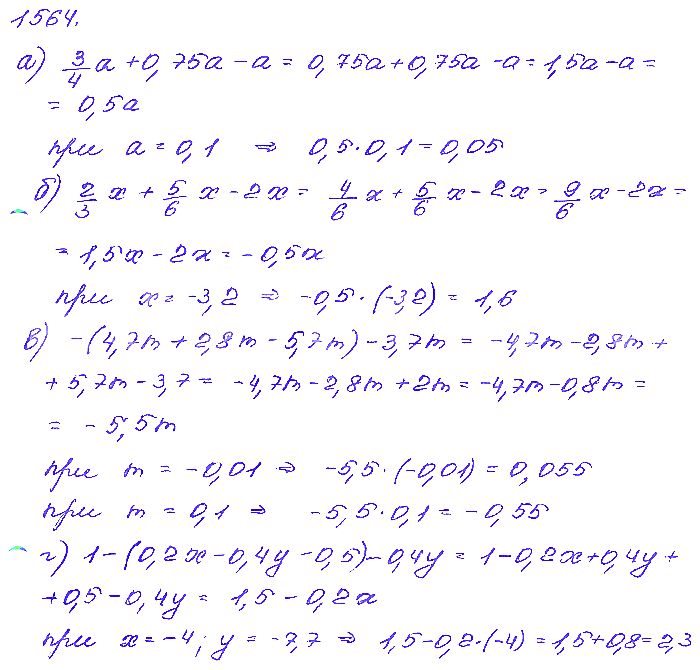 1564.
а) 3/4 a + 0,75a - a = 0,75a + 0,75a - a = 1,5a - a =
= 0,5a
при a = 0,1 ⇒ 0,5·0,1 = 0,05
б) 2/3 x + 5/6 x - 2x = 4/6 x + 5/6 x - 2x = 9/6 x - 2x =
= 1,5x - 2x = -0,5x
при x = -3,2 ⇒ -0,5·(-3,2) = 1,6
в) -(4,7m + 2,8m - 5,7m) - 3,7m = -4,7m - 2,8m +
+ 5,7m - 3,7 = -4,7m - 2,8m + 2m = -4,7m - 0,8m =
= -5,5m
при m = -0,01 ⇒ -5,5·(-0,01) = 0,055
при m = 0,1 ⇒ -5,5·0,1 = -0,55
г) 1 - (0,2x - 0,4y - 0,5) - 0,4y = 1 - 0,2x + 0,4y +
+ 0,5 - 0,4y = 1,5 - 0,2x
при x = -4; y = -7,7 ⇒ 1,5 - 0,2·(-4) = 1,5 + 0,8 = 2,3